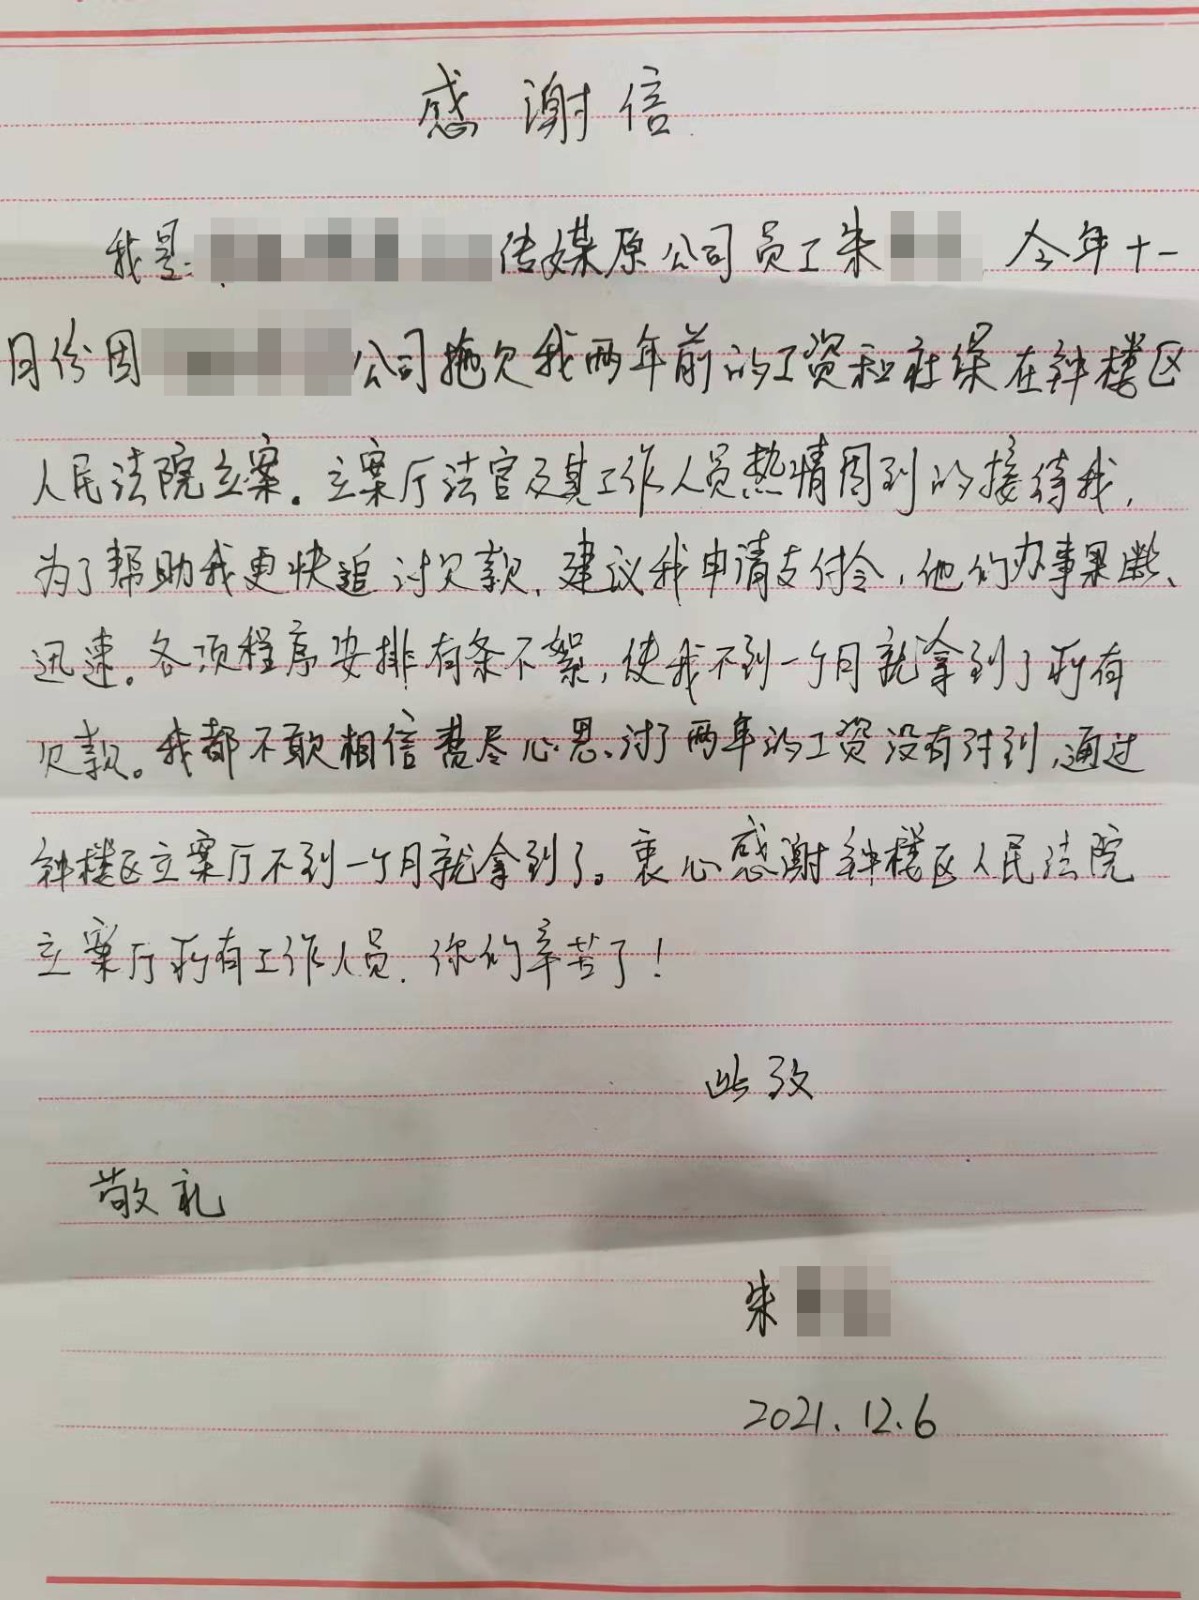 感谢信
我是: 传媒原公司员工朱 今年十一
月份因 公司拖欠我两年前的工资和社保在钟楼区
人民法院立案。立案厅法官及其工作人员热情周到的接待我,
为了帮助我更快追讨欠款,建议我申请支付令,他们办事果断、
迅速。各项程序安排有条不絮,使我不到一个月就拿到了所有
欠款。我都不敢相信费尽心思、讨了两年的工资没有讨到,通过
钟楼区立案厅不到一个月就拿到了。衷心感谢钟楼区人民法院
立案厅所有工作人员.你们辛苦了!
此致
敬礼
朱
2021.12.6